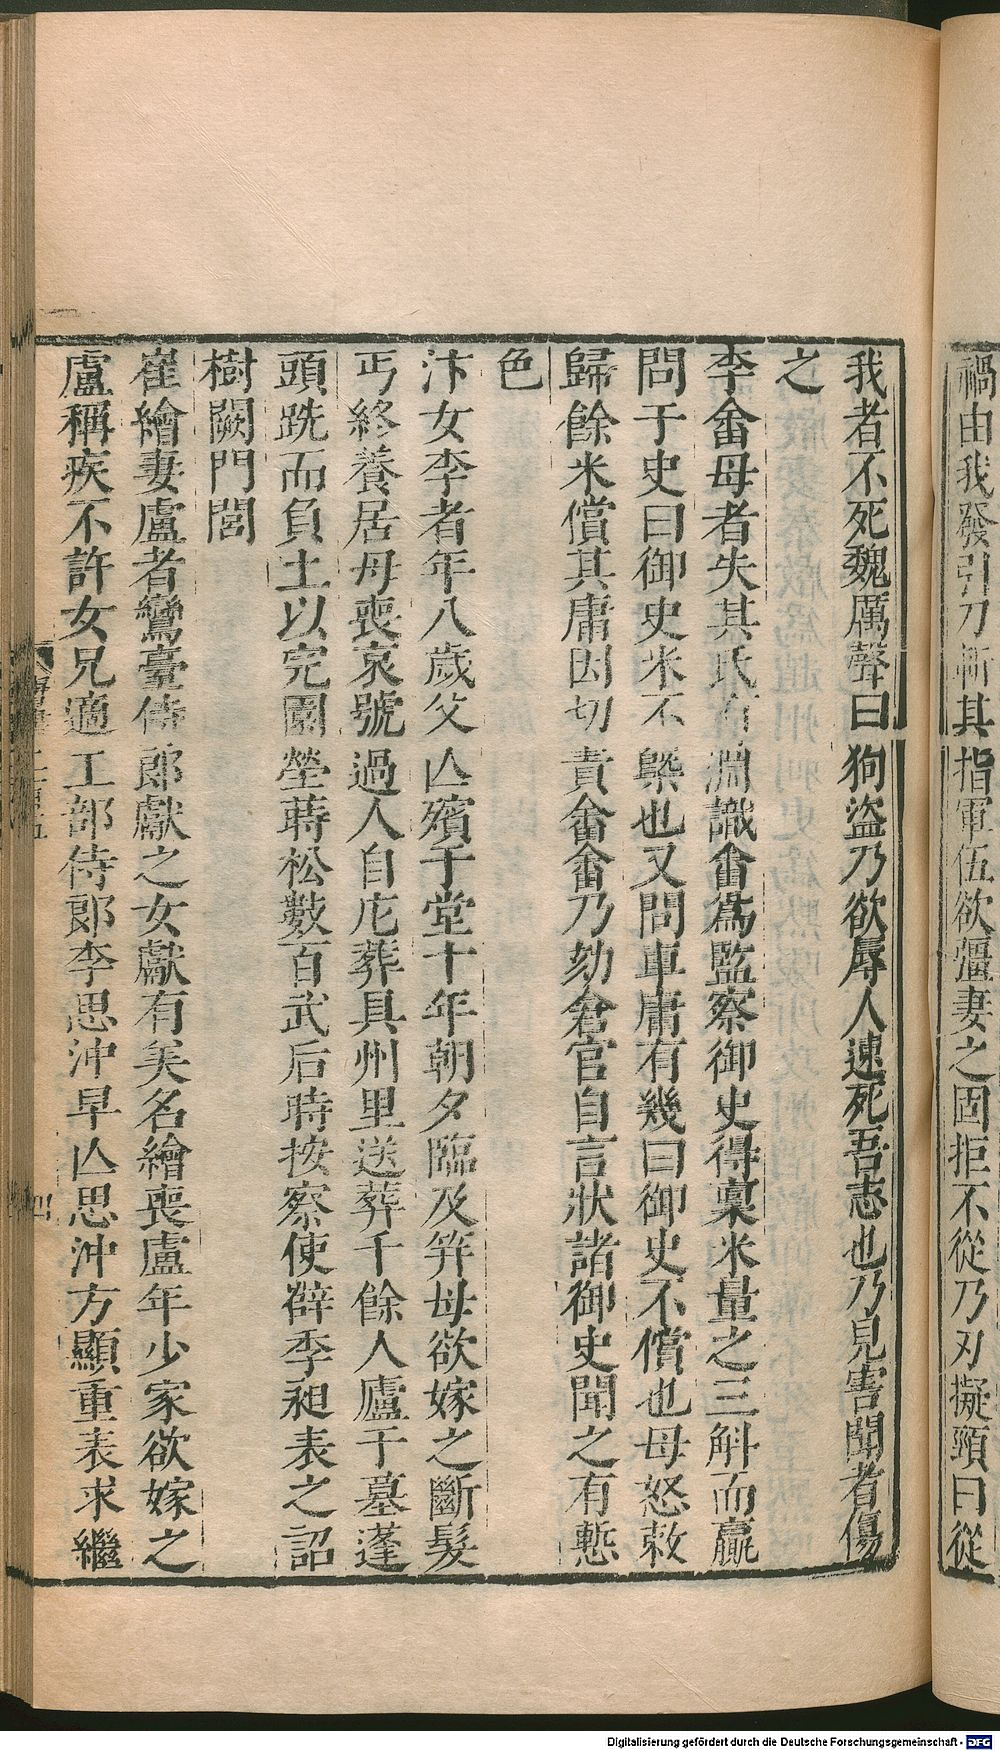 禍由我發引刀斬其指軍伍欲彊妻之固拒不從乃刃擬頸曰從
我者不死魏厲聲曰狗盜乃欲辱人速死吾志也乃見害聞者傷
之
李畬母者失其氏有淵識畬爲監察御史得稟米量之三斛而贏
問于史曰御史米不槩也又問車庸有幾曰御史不償也母怒敕
歸餘米償其庸因切責畬畬乃劾倉官自言狀諸御史聞之有慙
色
汴女李者年八歲父亾殯于堂十年朝夕臨及笄母欲嫁之斷髮
丐終養居母喪哀號過人自庀葬具州里送葬千餘人廬于墓蓬
頭跣而負土以完園塋蒔松數百武后時按察使薛季昶表之詔
樹闕門閭
崔繪妻盧者鸞臺侍郞獻之女獻有美名繪喪盧年少家欲嫁之
盧稱疾不許女兄適工部侍郞李思沖早亾思沖方顯重表求繼
四
Digitalisierung gefördert durch die Deutsche Forschungsgemeinschaft - DFG